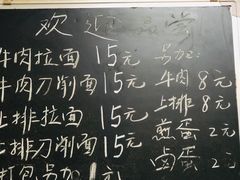 欢迎品尝
牛肉拉面 15元
牛肉刀削面 15元
上排拉面 15元
上排刀削面 15元
打包另加1元
另加:
牛肉 8元
上排 8元
煎蛋 2元
卤蛋 2元